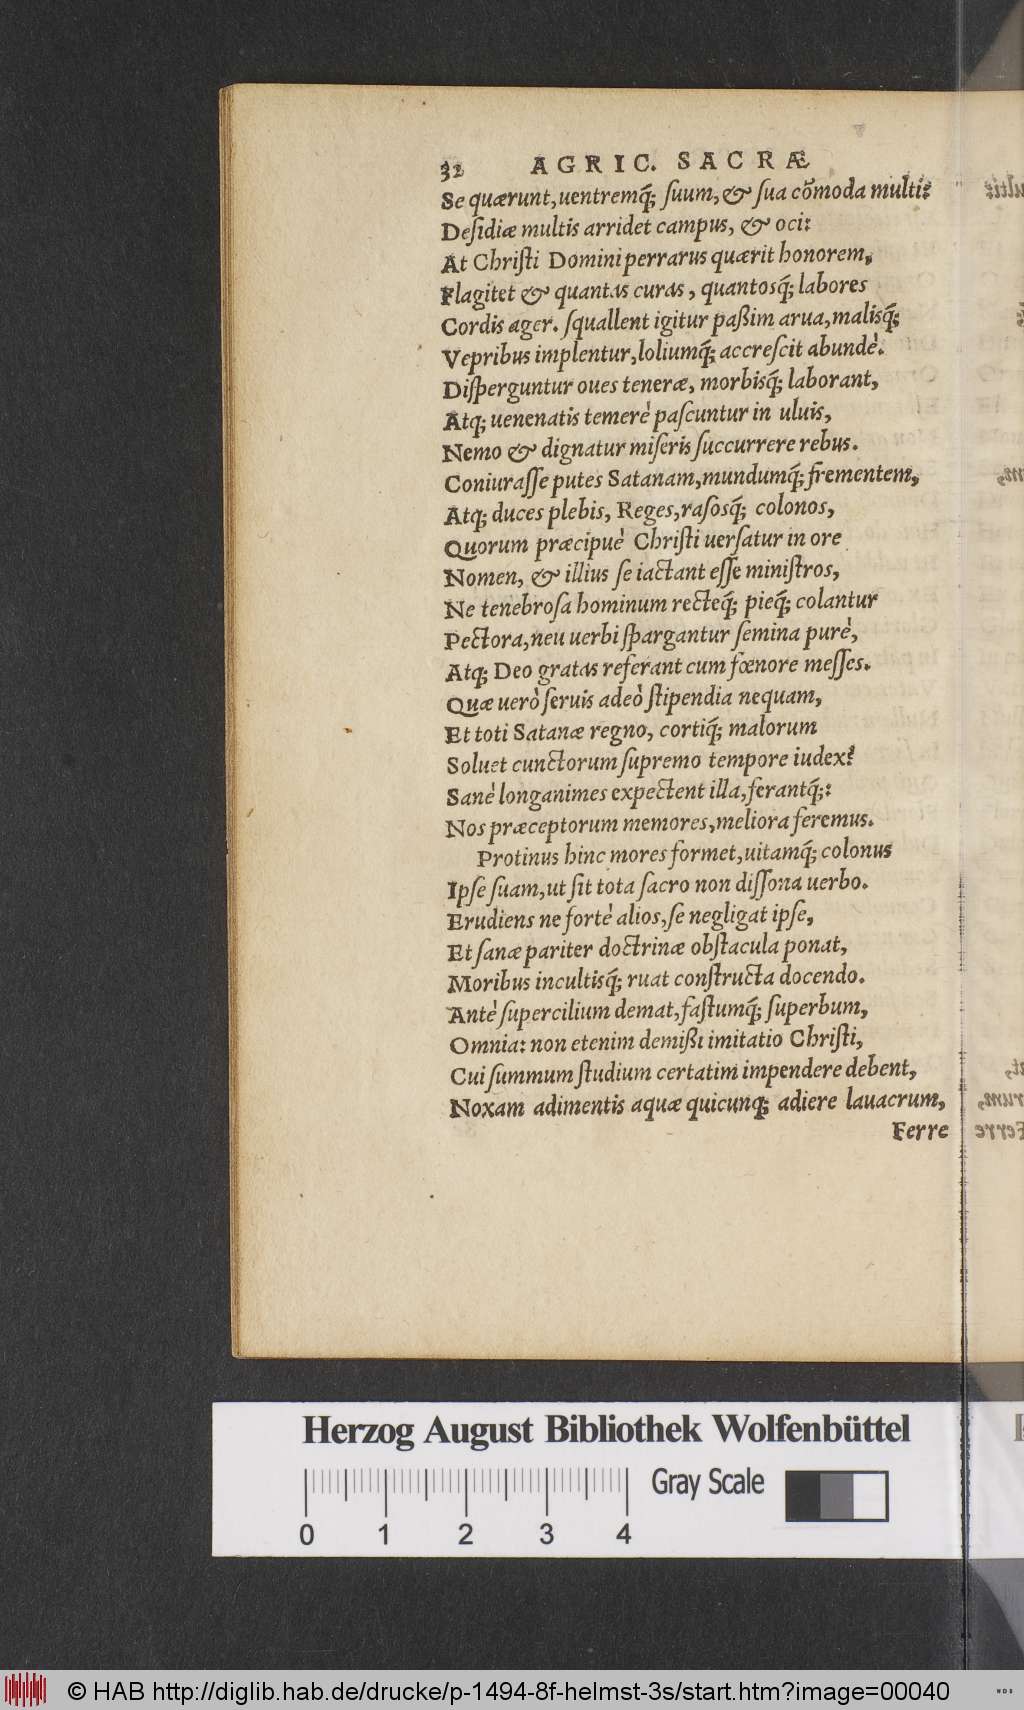 32 AGRIC. SACRÆ
Se quærunt, uentremq́; ſuum, & ſua cõmoda multi:
Deſidiæ multis arridet campus, & oci:
At Chriſti Domini perrarus quærit honorem,
Flagitet & quantas curas, quantosq́; labores
Cordis ager. ſquallent igitur paßim arua, malisq́;
Vepribus implentur, loliumq́; accreſcit abundè.
Diſperguntur oues teneræ, morbisq́; laborant,
Atq; uenenatis temerè paſcuntur in uluis,
Nemo & dignatur miſeris ſuccurrere rebus.
Coniuraſſe putes Satanam, mundumq́; frementem,
Atq; duces plebis, Reges, raſosq́; colonos,
Quorum præcipuè Chriſti uerſatur in ore
Nomen, & illius ſe iactant eſſe miniſtros,
Ne tenebroſa hominum recteq́; pieq́; colantur
Pectora, neu uerbi ſpargantur ſemina purè,
Atq; Deo gratas referant cum fœnore meſſes.
Quæ uerò ſeruis adeò ſtipendia nequam,
Et toti Satanæ regno, cortiq́; malorum
Soluet cunctorum ſupremo tempore iudex?
Sanè longanimes expectent illa, ferantq́;:
Nos præceptorum memores, meliora feremus.
Protinus hinc mores formet, uitamq́; colonus
Ipſe ſuam, ut ſit tota ſacro non diſſona uerbo.
Erudiens ne fortè alios, ſe negligat ipſe,
Et ſanæ pariter doctrinæ obſtacula ponat,
Moribus incultisq́; ruat conſtructa docendo.
Antè ſupercilium demat, faſtumq́; ſuperbum,
Omnia: non etenim demißi imitatio Chriſti,
Cui ſummum ſtudium certatim impendere debent,
Noxam adimentis aquæ quicunq; adiere lauacrum,
Ferre
Herzog August Bibliothek Wolfenbüttel
Gray Scale
0 1 2 3 4
© HAB http://diglib.hab.de/drucke/p-1494-8f-helmst-3s/start.htm?image=00040